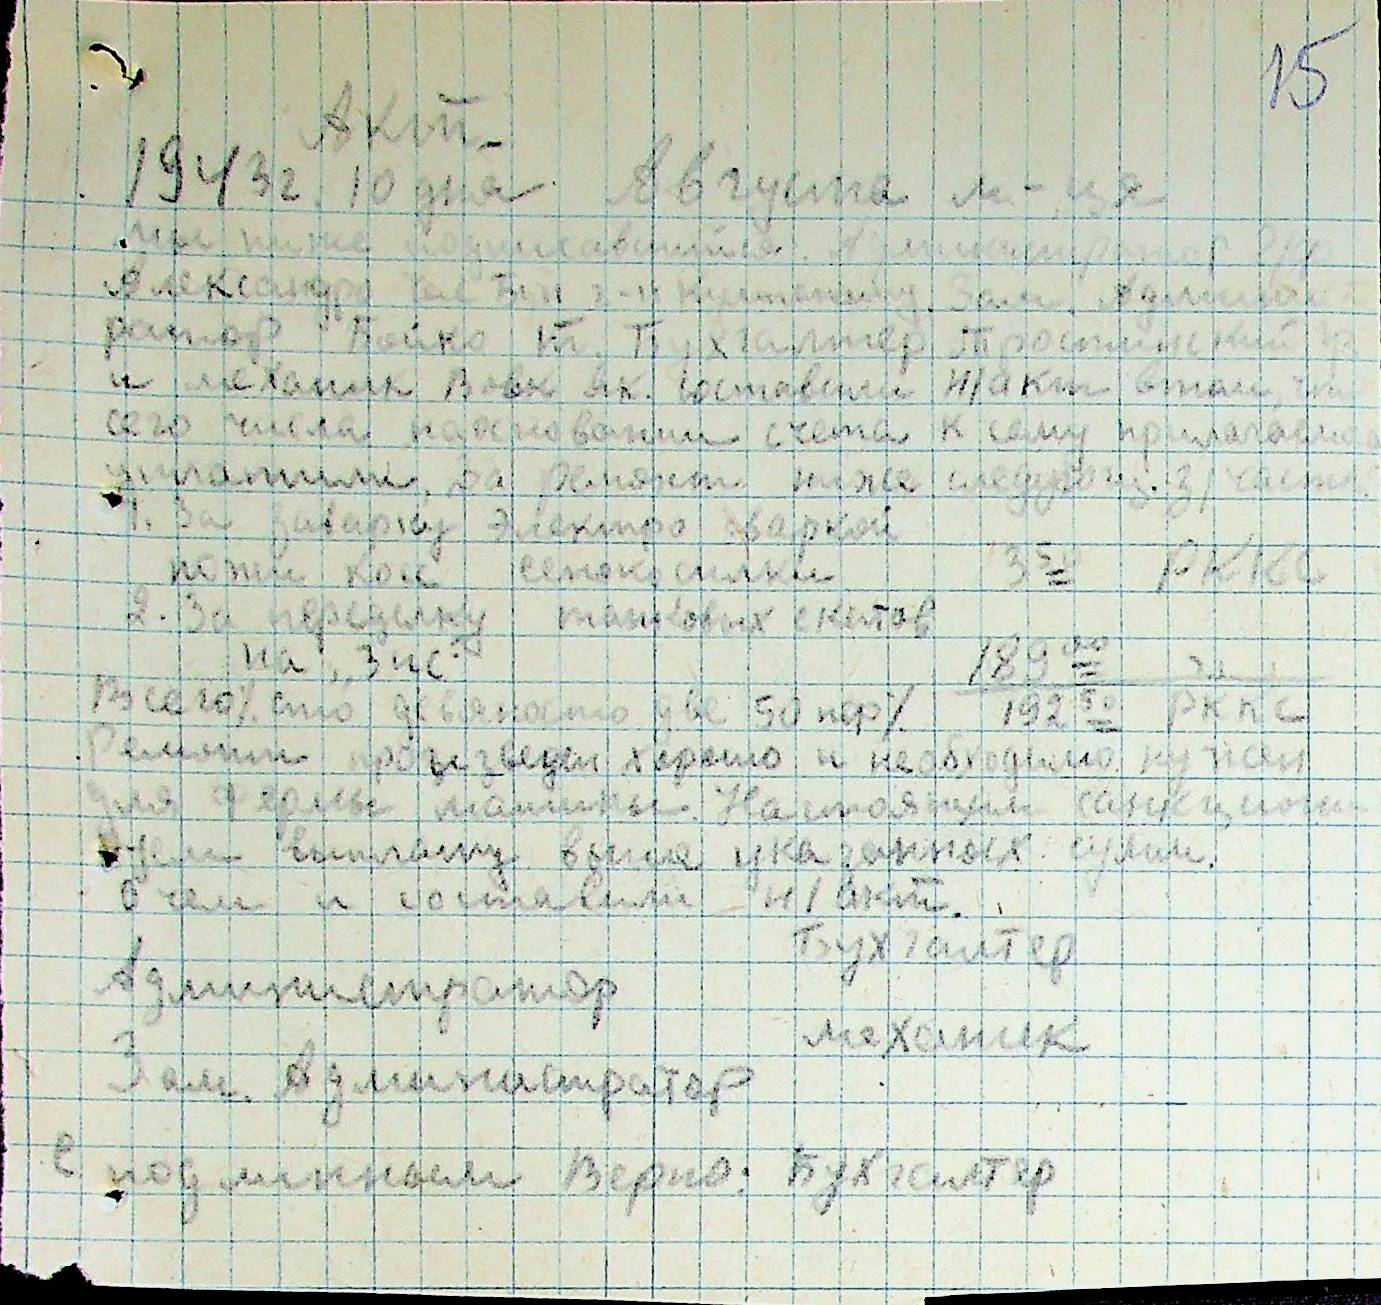 15
Акт.
1943г. 10 дня Августа м-ця
Мы ниже подписавшийся: Администратор
Александро Зам. Админист
ратор Бойко Т. Бухгалтер Тростинский
и механик Вовк Як. составили н/акт втом, что
сего числа наосновании счета к сему прилагаемая
уплатили, за ремонт ниже следующ. з/части.
1. За заварку электро сваркой
ножи кос сенокосилки 3 50 РККС
2. За переделку танковых скатов
на „Зис" 189 00
Всего/. сто девяносто две 50 пф/. 192 50 РККС
Ремонт произведен хорошо и необходимо нужен
для фермы машины. Настоящим санкциони
руем выплату выше указанных сумм.
О чем и составили н/акт.
Бухгалтер
Администратор
механик
Зам. Администратор
С подлинным Верно: Бухгалтер